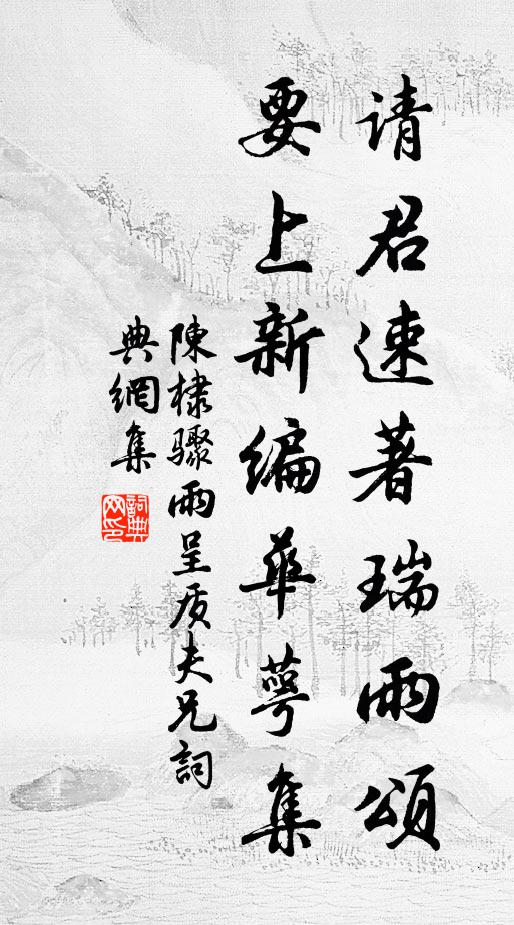 请君速著瑞雨頌
要上新编華萼集
陳棣骤雨呈质夫兄詞
典網集
詞典網印